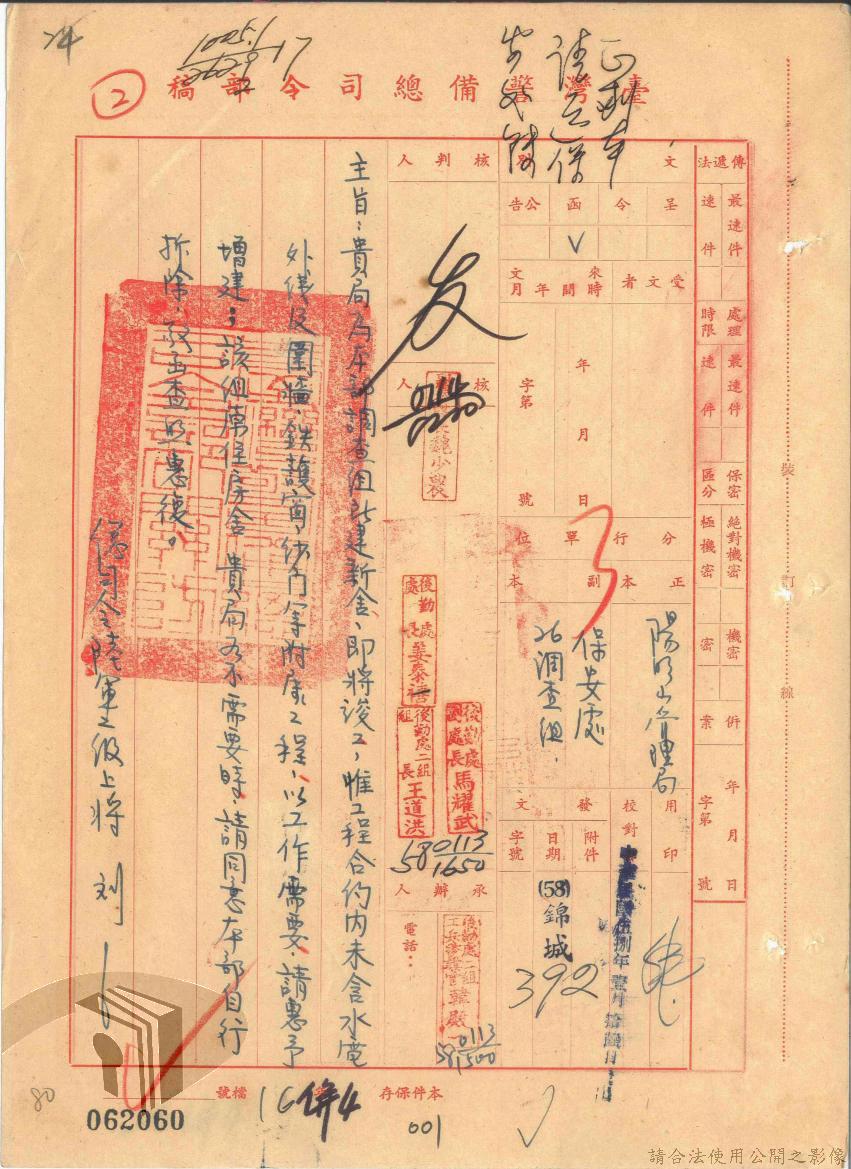 臺灣警備總司令部稿
②
1005.1
17
24
正副本
傳遞法
最速件
速件
處理時限
最速件
速件
保密區分
絕對機密
極機密
機密
密
併案
年月日
字第號
文別
呈
令
函
公告
V
受文者
來文時間
年月
年月日
字第號
分行單位
正本
副本
陽明山管理局
保安處
26調查組
用印
校對
發文
附件
日期
字號
中華民國伍捌年壹月拾肆日
(58)錦城
392
核判人
發
核人
魏少農
後勤處處長姜泰
後勤處副處長馬耀武
後勤處二組組長王道洪
580113
1650
承辦人
電話：
後勤處二組
韓殿
580113
1500
主旨：貴局為本部調查組所建新舍、即將竣工，惟工程合約內未含水電
外綫及圍牆、鉄護窗、紗門等附屬工程，以工作需要，請惠予
增建；該組舊住房舍，貴局若不需要時，請同意本部自行
拆除，敬函查照惠復。
總司令陸軍二級上將 劉
裝訂線
本件保存
檔號
16併4
062060
001
80
請合法使用公開之影像